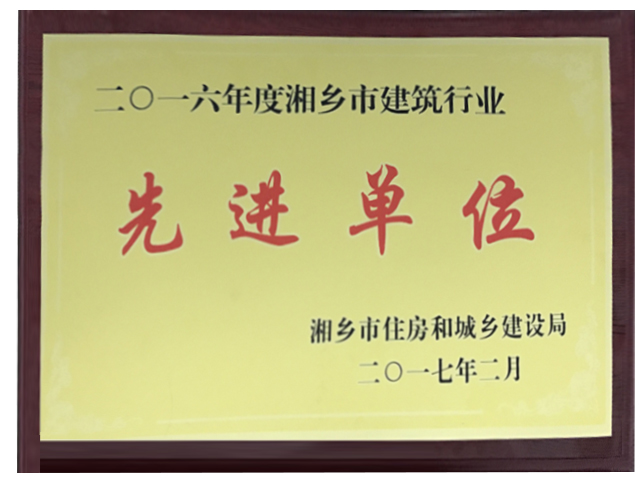 二〇一六年度湘乡市建筑行业
先进单位
湘乡市住房和城乡建设局
二〇一七年二月